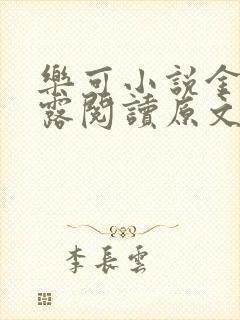 樂可小說金
露閱讀原文
李長雲